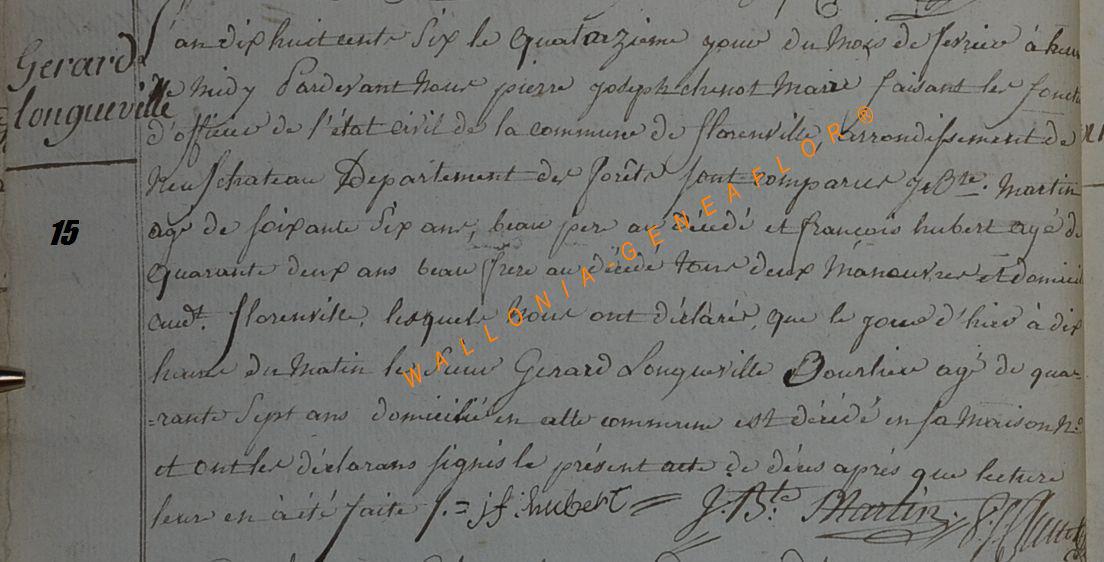 Gerard
Longueville
15
L'an dix huit cents Six le quatorzième jour du Mois de fevrier à
de midy Pardevant Nous pierre joseph chenot Maire faisant les
d'officier de l'état civil de la commune de florenville, arrondissement de
Neufchateau Departement des forêts sont comparus je Bte. Martin
agé de soixante Six ans, beau per au décédé et françois hubert agé de
quarante deux ans beau frere au décédé tous deux Manoeuvres et
audt. florenville, lesquels Nous ont déclarés, que le jour d'hier à dix
heure du Matin le Sieur Gerard Longueville Bourlier agé de qua-
-rante Sept ans domicilié en cette commune est décédé en sa Maison No
et ont les déclarans signés le présent acte de déces aprés que lecture
leur en à été faite /. = jf: hubert = J. Bte. Martin.
WALLONIA-GENEAFLOR®